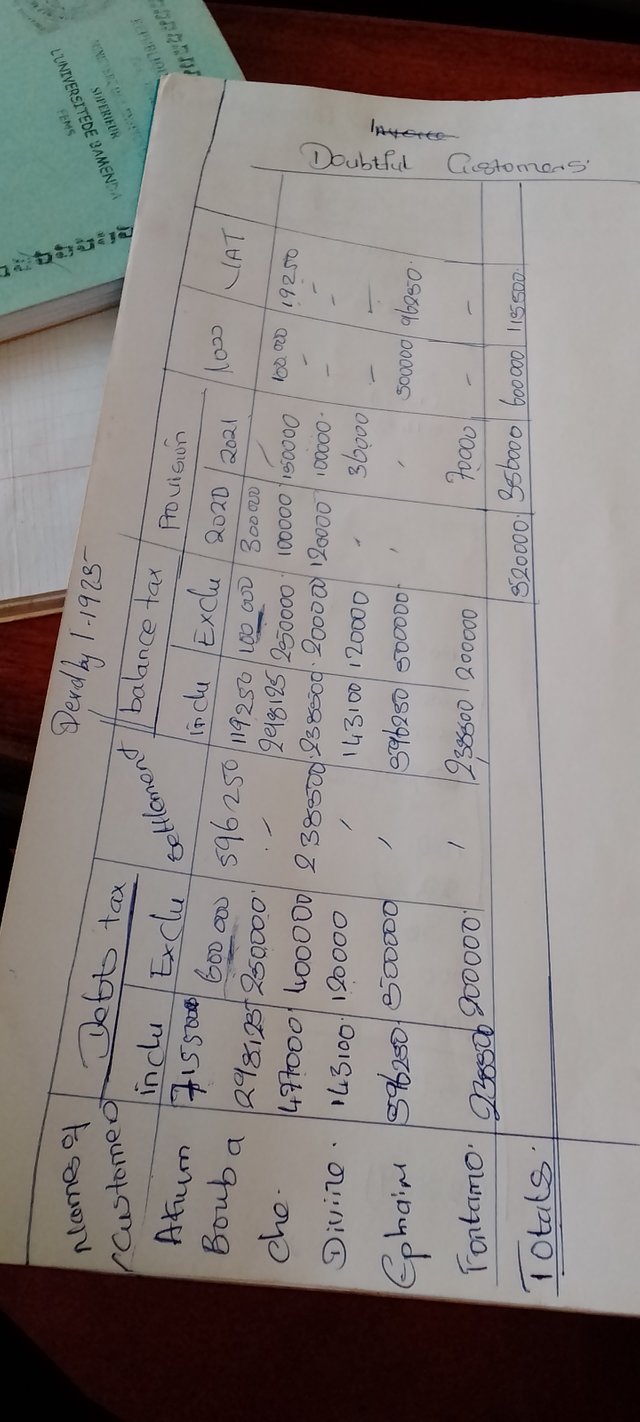 SUPERIEUR
L'UNIVERSITE DE BAMENDA
FEMS
Doubtful Customers
Devd by 1.1925
Names of Debts tax settlement balance tax Provision VAT
inclu Exclu inclu Exclu 2020 2021
Atium 600 000 596250 119250 100 000 300000 / 100 000 19250
Bouba 298125 250000 - 298125 250000 100000 150000 - -
Che 477000 400000 238500 238500 200000 120000 100000 - -
Divine 143100 120000 , 143100 120000 , 36000 - -
Ephaim 596250 500000 , 596250 500000 , , 500000 96250
Fontamo 238500 200000 , 238500 200000 70000 - -
Totals 520000 356000 600000 115500